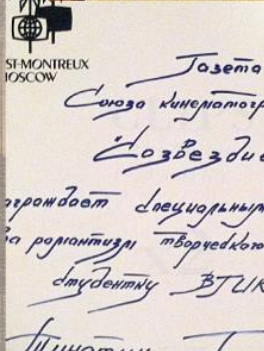 ST-MONTREUX
MOSCOW
Газета
Союза кинематогр
"Созвездие
аграждает специальным
за романтизм творческого
студентку ВГИК